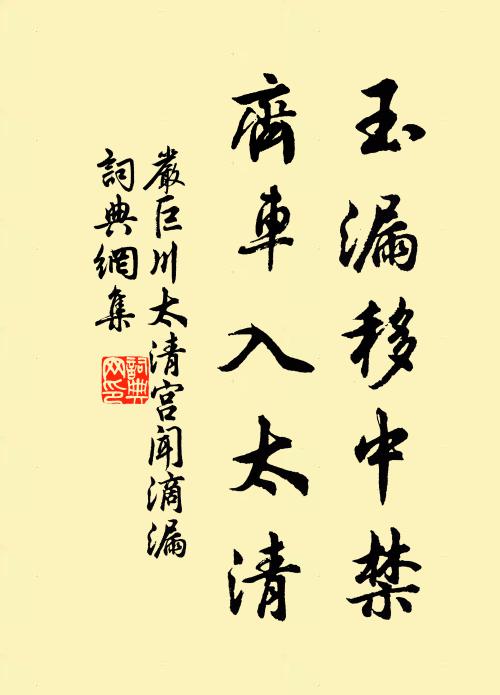 玉漏移中禁
齊車入太清
嚴巨川太清宮聞滴漏
詞典網集
詞典
网印